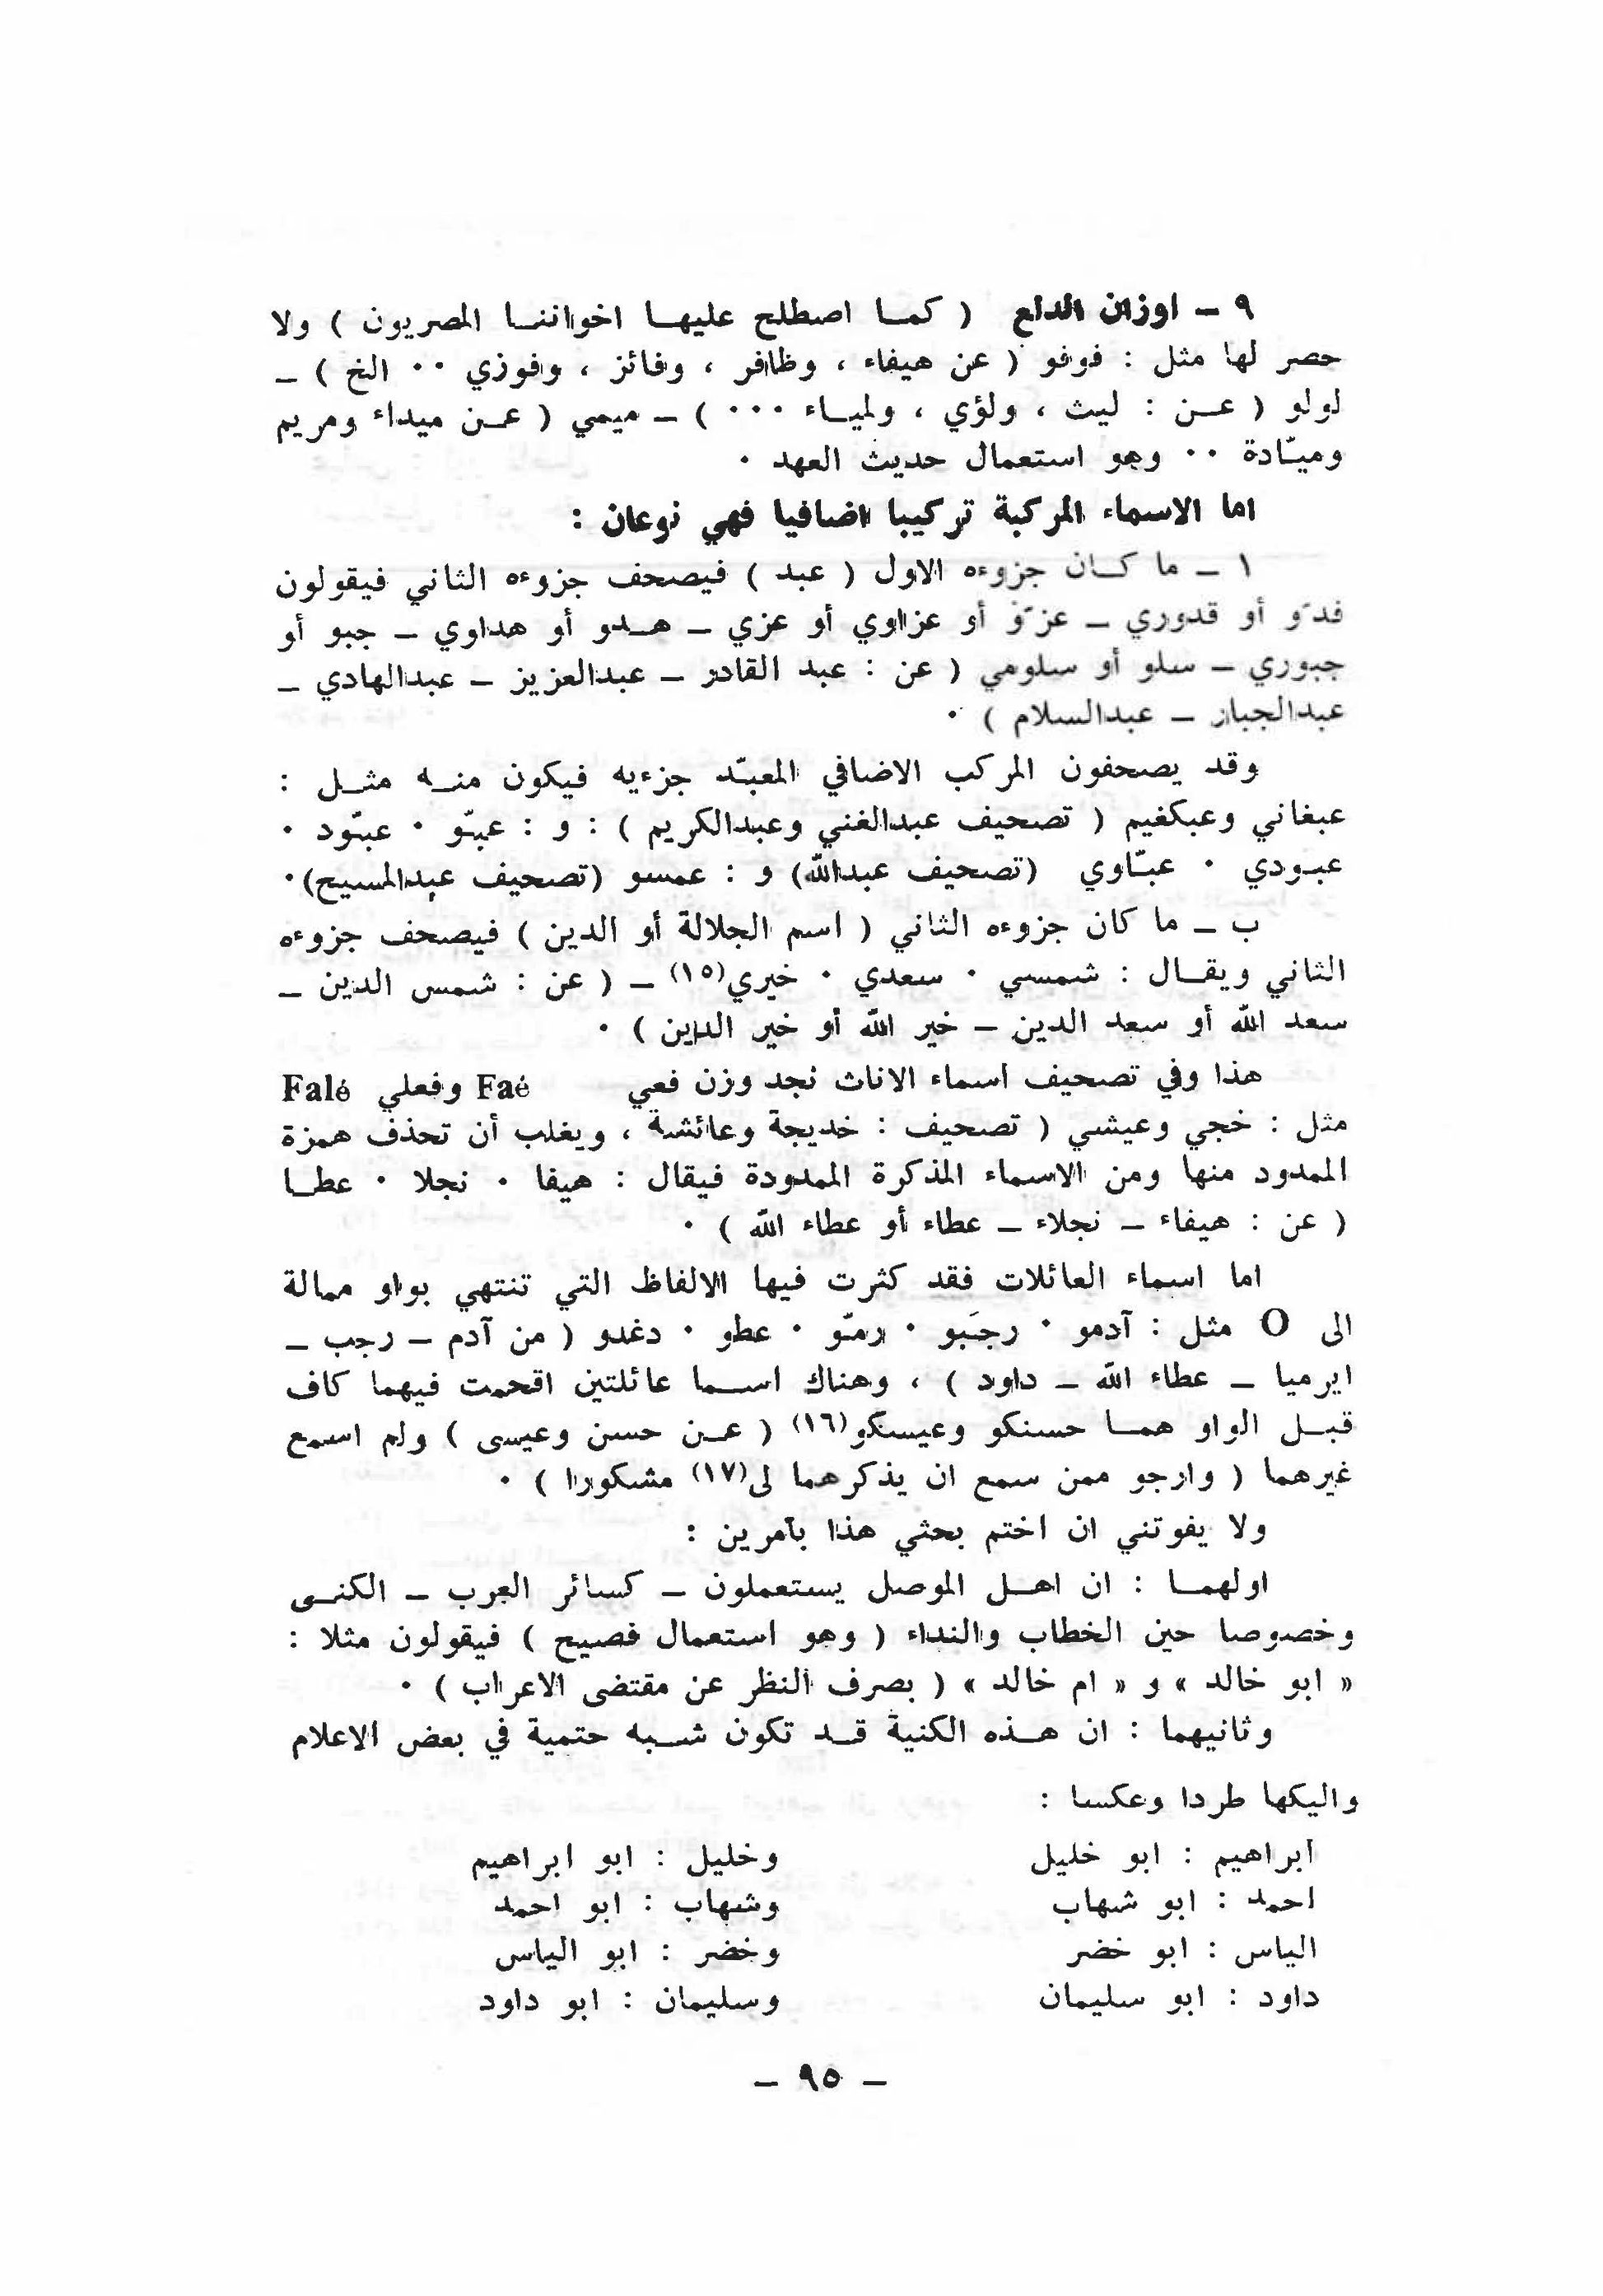 ٩ – اوزان الدلع ( كما اصطلح عليها اخواننا المصريون ) ولا
حصر لها مثل : فوفو ( عن هيفاء ، وظافر ، وفائز ، وفوزي ٠٠ الخ ) –
لولو ( عن : ليث ، ولؤي ، ولمياء ٠٠٠ ) – ميمي ( عن ميداء ومريم
وميّادة ٠٠ وهو استعمال حديث العهد ٠
اما الاسماء المركبة تركيبا اضافيا فهي نوعان :
١ – ما كان جزوءه الاول ( عبد ) فيصحف جزوءه الثاني فيقولون
قدّو أو قدوري – عزّو أو عزاوي أو عزي – هدو أو هداوي – جبو أو
جبوري – سلو أو سلومي ( عن : عبد القادر – عبدالعزيز – عبدالهادي –
عبدالجبار – عبدالسلام ) ٠
وقد يصحفون المركب الاضافي المعبّد جزءيه فيكون منه مثل :
عبغاني وعبكغيم ( تصحيف عبدالغني وعبدالكريم ) : و : عبّو ٠ عبّود ٠
عبودي ٠ عبّاوي (تصحيف عبدالله) و : عمسو (تصحيف عبدالمسيح)٠
ب – ما كان جزوءه الثاني ( اسم الجلالة أو الدين ) فيصحف جزوءه
الثاني ويقال : شمسي ٠ سعدي ٠ خيري(١٥) – ( عن : شمس الدين –
سعد الله أو سعد الدين – خير الله أو خير الدين ) ٠
هذا وفي تصحيف اسماء الاناث نجد وزن فعي Faé وفعلي Falé
مثل : خجي وعيشي ( تصحيف : خديجة وعائشة ، ويغلب أن تحذف همزة
الممدود منها ومن الاسماء المذكرة الممدودة فيقال : هيفا ٠ نجلا ٠ عطا
( عن : هيفاء – نجلاء – عطاء أو عطاء الله ) ٠
اما اسماء العائلات فقد كثرت فيها الالفاظ التي تنتهي بواو ممالة
الى O مثل : آدمو ٠ رجَبو ٠ رمّو ٠ عطو ٠ دغدو ( من آدم – رجب –
ايرميا – عطاء الله – داود ) ، وهناك اسما عائلتين اقحمت فيهما كاف
قبل الواو هما حسنكو وعيسكو(١٦) ( عن حسن وعيسى ) ولم اسمع
غيرهما ( وارجو ممن سمع ان يذكرهما لى(١٧) مشكورا ) ٠
ولا يفوتني ان اختم بحثي هذا بأمرين :
اولهما : ان اهل الموصل يستعملون – كسائر العرب – الكنى
وخصوصا حين الخطاب والنداء ( وهو استعمال فصيح ) فيقولون مثلا :
« ابو خالد » و « ام خالد » ( بصرف النظر عن مقتضى الاعراب ) ٠
وثانيهما : ان هذه الكنية قد تكون شبه حتمية في بعض الاعلام
واليكها طردا وعكسا :
ابراهيم : ابو خليل وخليل : ابو ابراهيم
احمد : ابو شهاب وشهاب : ابو احمد
الياس : ابو خضر وخضر : ابو الياس
داود : ابو سليمان وسليمان : ابو داود
– ٩٥ –